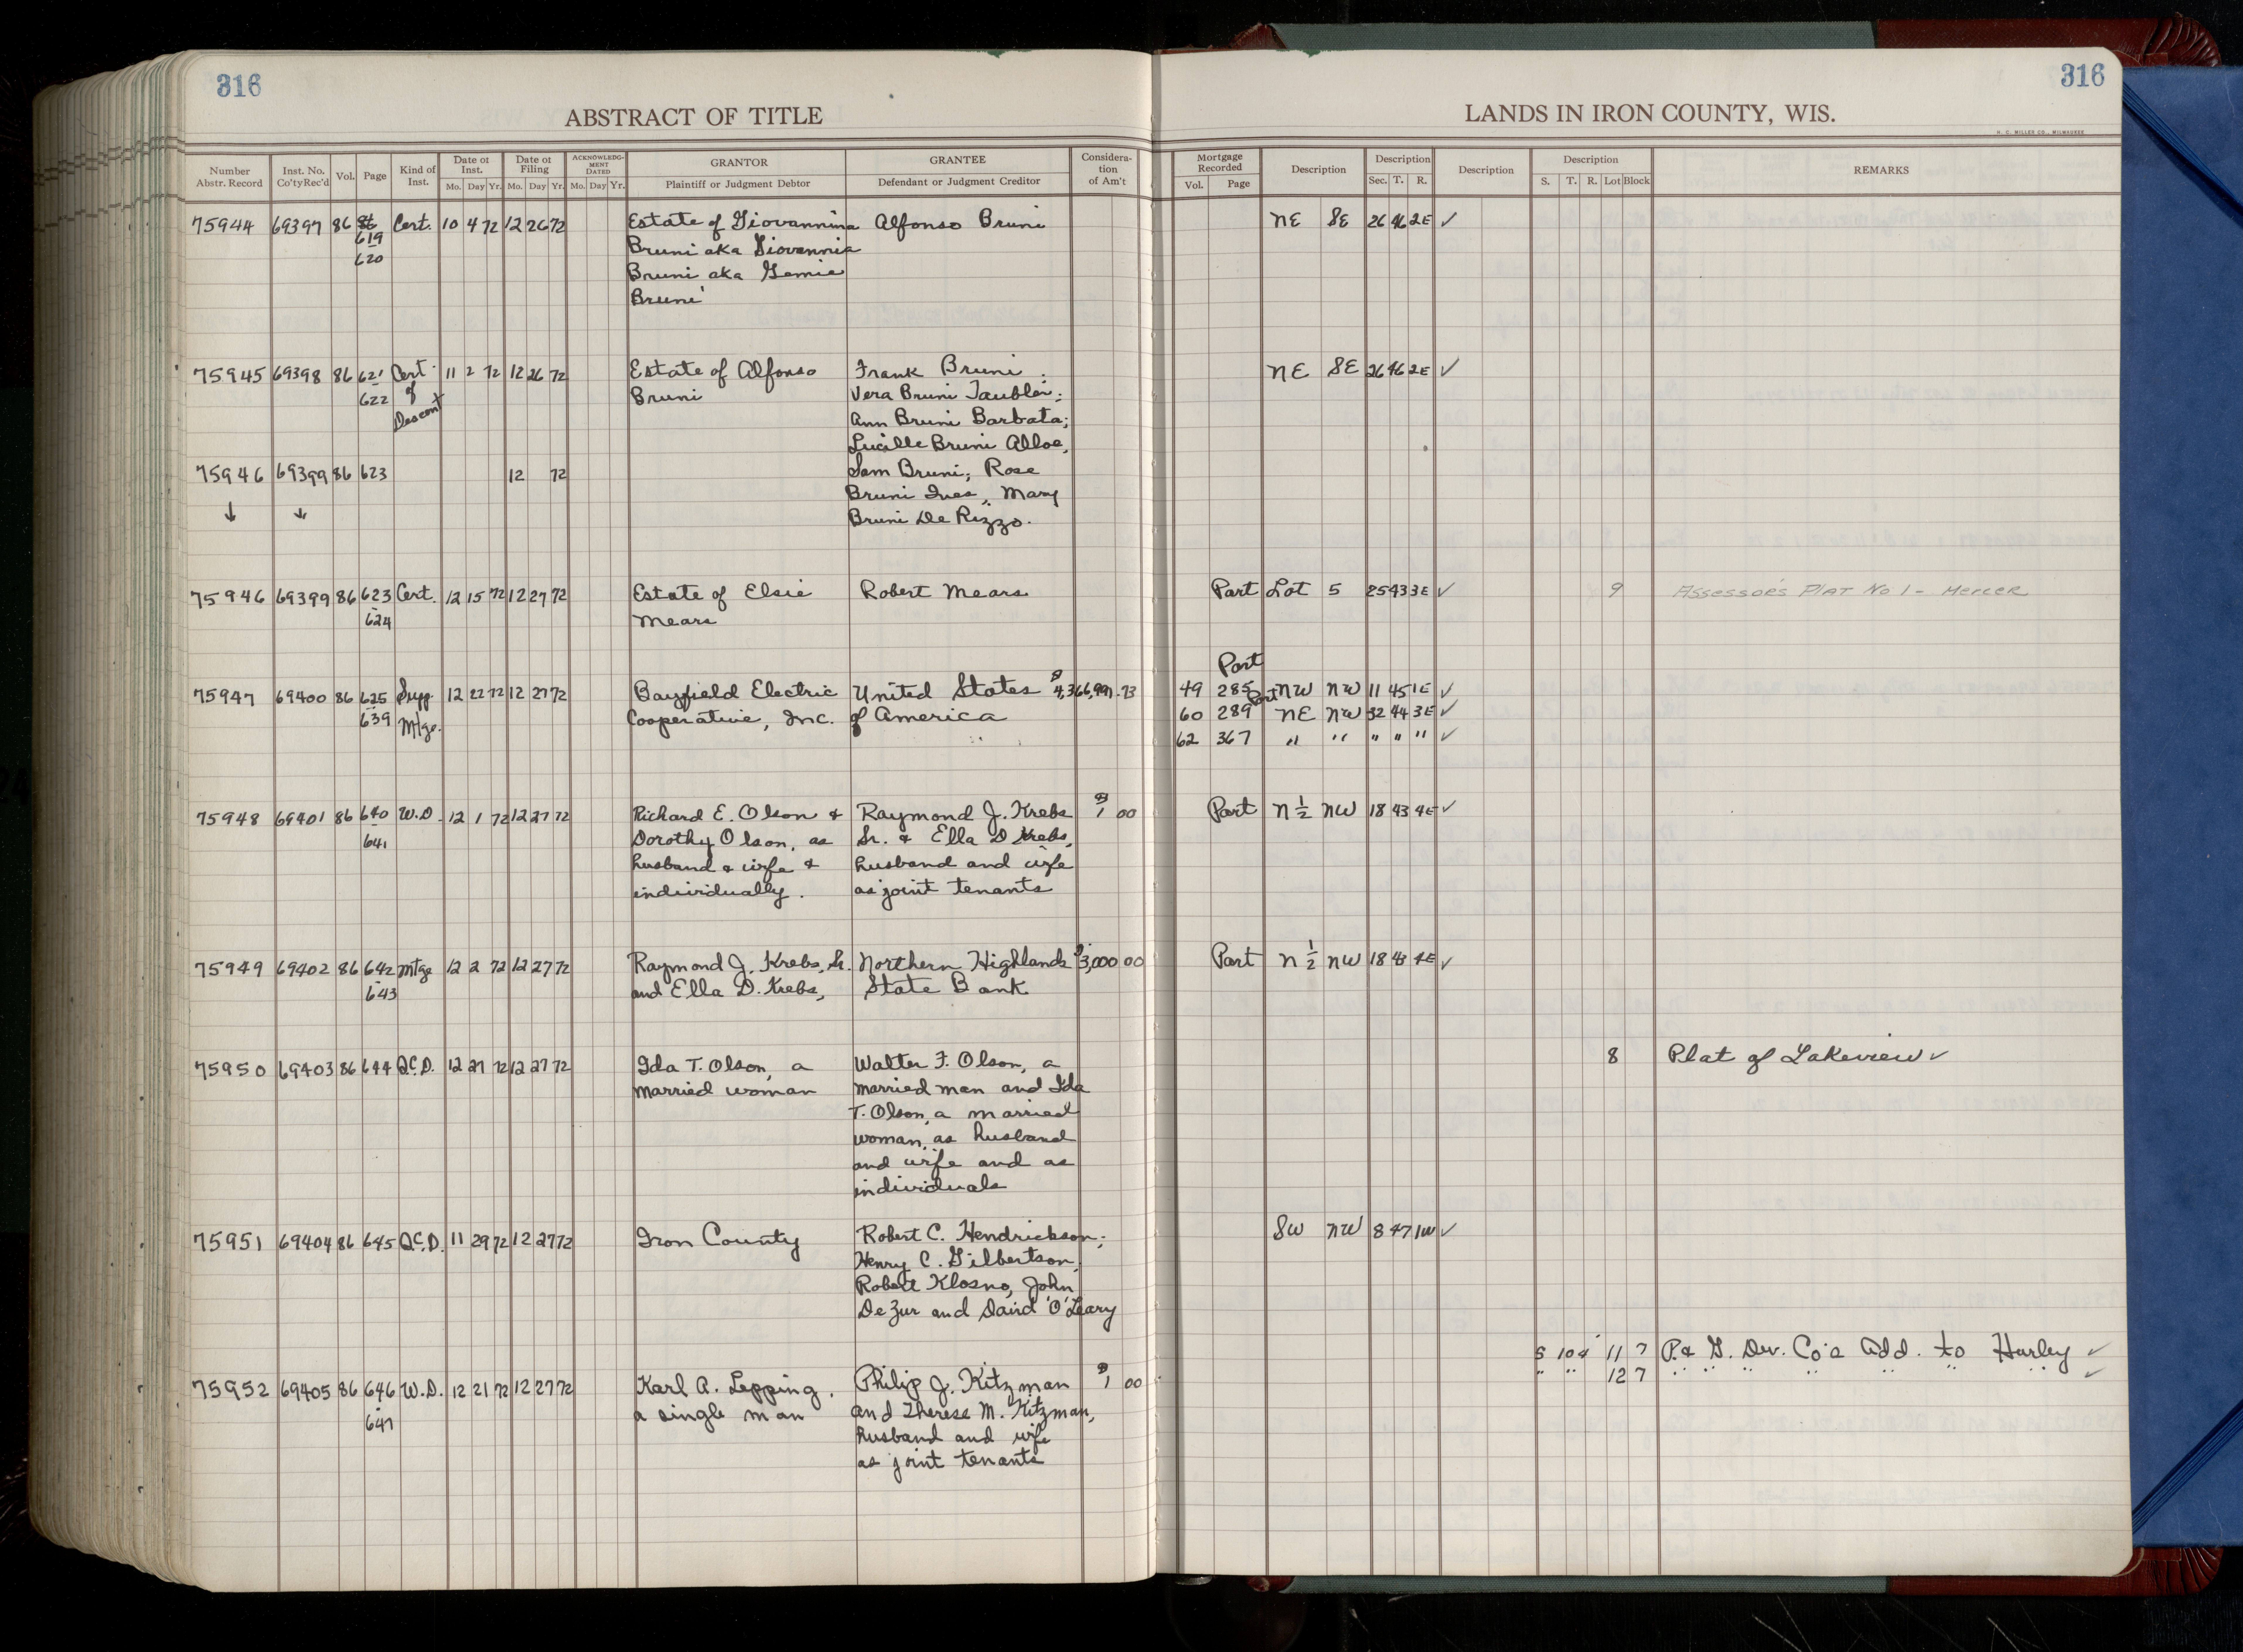 316
316
ABSTRACT OF TITLE
LANDS IN IRON COUNTY, WIS.
H. C. MILLER CO., MILWAUKEE
Number Abstr. Record | Inst. No. Co'ty Rec'd | Vol. | Page | Kind of Inst. | Date of Inst. Mo. Day Yr. | Date of Filing Mo. Day Yr. | ACKNOWLEDGMENT DATED Mo. Day Yr. | GRANTOR Plaintiff or Judgment Debtor | GRANTEE Defendant or Judgment Creditor | Consideration of Am't | Mortgage Recorded Vol. Page | Description | Description Sec. T. R. | Description | Description S. T. R. Lot Block | REMARKS
75944 69397 86 Cert. 10 4 72 12 26 72 Estate of Giovannina Alfonso Bruni NE SE 26 46 2E ✓
619 Bruni aka Giovannia
620 Bruni aka Gemie
Bruni
75945 69398 86 621 Cert. 11 2 72 12 26 72 Estate of Alfonso Frank Bruni NE SE 26 46 2E ✓
622 of Bruni Vera Bruni Taublei;
Descent Ann Bruni Barbata;
Lucille Bruni Alloe,
75946 69399 86 623 12 72 Sam Bruni; Rose
↓ ↓ Bruni Ines, Mary
Bruni De Rizzo.
75946 69399 86 623 Cert. 12 15 72 12 27 72 Estate of Elsie Robert Mears Part Lot 5 25 43 3E ✓ 9 Assessor's Plat No 1 - Mercer
624 Mears
Part
75947 69400 86 625 Supp. 12 22 72 12 27 72 Bayfield Electric United States $4,366,991.73 49 285 Part NW NW 11 45 1E ✓
639 Mtge. Cooperative, Inc. of America 60 289 NE NW 32 44 3E ✓
62 367 " " " " " ✓
75948 69401 86 640 W.D. 12 1 72 12 27 72 Richard E. Olson & Raymond J. Krebs $1 00 Part N ½ NW 18 43 4E ✓
641 Dorothy Olson, as Sr. & Ella D Krebs,
husband & wife & husband and wife
individually. as joint tenants
75949 69402 86 642 Mtge 12 2 72 12 27 72 Raymond J. Krebs, Sr. Northern Highlands $3,000 00 Part N ½ NW 18 43 4E ✓
643 and Ella D. Krebs, State Bank
75950 69403 86 644 Q.C.D. 12 27 72 12 27 72 Ida T. Olson, a Walter F. Olson, a 8 Plat of Lakeview ✓
married woman married man and Ida
T. Olson, a married
woman, as husband
and wife and as
individuals
75951 69404 86 645 Q.C.D. 11 29 72 12 27 72 Iron County Robert C. Hendrickson; SW NW 8 47 1W ✓
Henry C. Gilbertson,
Robert Klosno, John
DeZur and David O'Leary
S 104' 11 7 P. & G. Dev. Co's Add. to Hurley ✓
" " 12 7 " " " " " " " ✓
75952 69405 86 646 W.D. 12 21 72 12 27 72 Karl A. Lepping, Philip J. Kitzman $1 00
647 a single man and Therese M. Kitzman,
husband and wife
as joint tenants